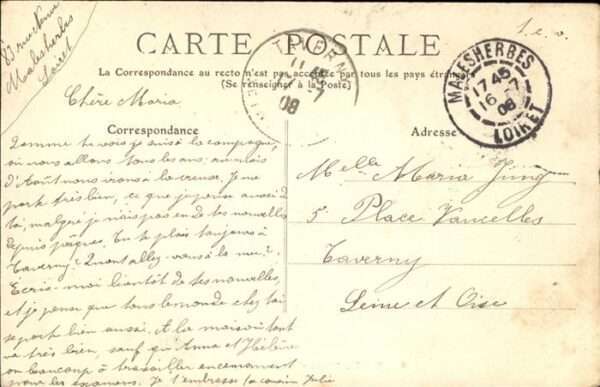 8 rue Neuve
Malesherbes
Loiret
t.c.o.
CARTE POSTALE
La Correspondance au recto n'est pas acceptée par tous les pays étrangers
(Se renseigner à la Poste)
TAVERNY
11
17-7
08
MALESHERBES
17 45
16-7
08
LOIRET
Chère Maria
Correspondance
Comme tu vois je suis à la campagne
où nous allons tous les ans; au mois
d'Août nous irons à la creuse. Je me
porte très bien, ce que je pense aussi de
toi, malgré je n'ais pas eu de tes nouvelles
depuis pâques. Tu te plais toujours à
Taverny? Quand allez-vous à la mer?
Écris-moi bientôt de tes nouvelles,
et je pense que tous le monde chez toi
se porte bien aussi. A la maison tout
va très bien, sauf qu'Anna et Hélène
ont beaucoup à travailler en ce moment
pour les examens. Je t'embrasse ta cousine Julie
Adresse
Melle Maria Jung
5 Place Vaucelles
Taverny
Seine et Oise